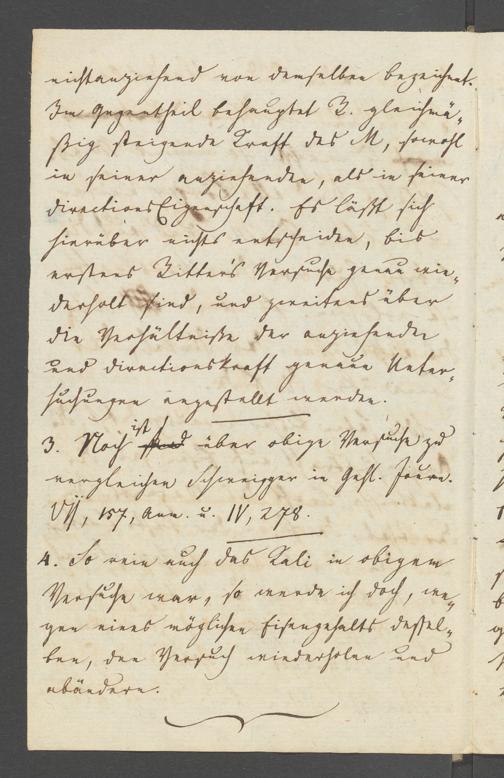 nichtanziehend von demselben bezeichnet.
Im Gegentheil behauptet R. gleichmä-
ßig steigende Kraft des M, sowohl
in seiner anziehenden, als in seiner
directionsEigenschaft. Es läßt sich
hierüber nichts entscheiden, bis
erstens Ritter's Versuche genau wie-
derholt sind, und zweitens über
die Verhältniße der anziehenden
und directionskraft genaue Unter-
suchungen angestellt werden.
3. Noch ist über obige Versuche zu
vergleichen Schweigger in Gehl. Journ.
VII, 157, Anm. u. IV, 278.
4. So rein auch das Kali in obigem
Versuche war, so werde ich doch, we-
gen eines möglichen Eisengehalts dessel-
ben, den Versuch wiederholen und
abändern.